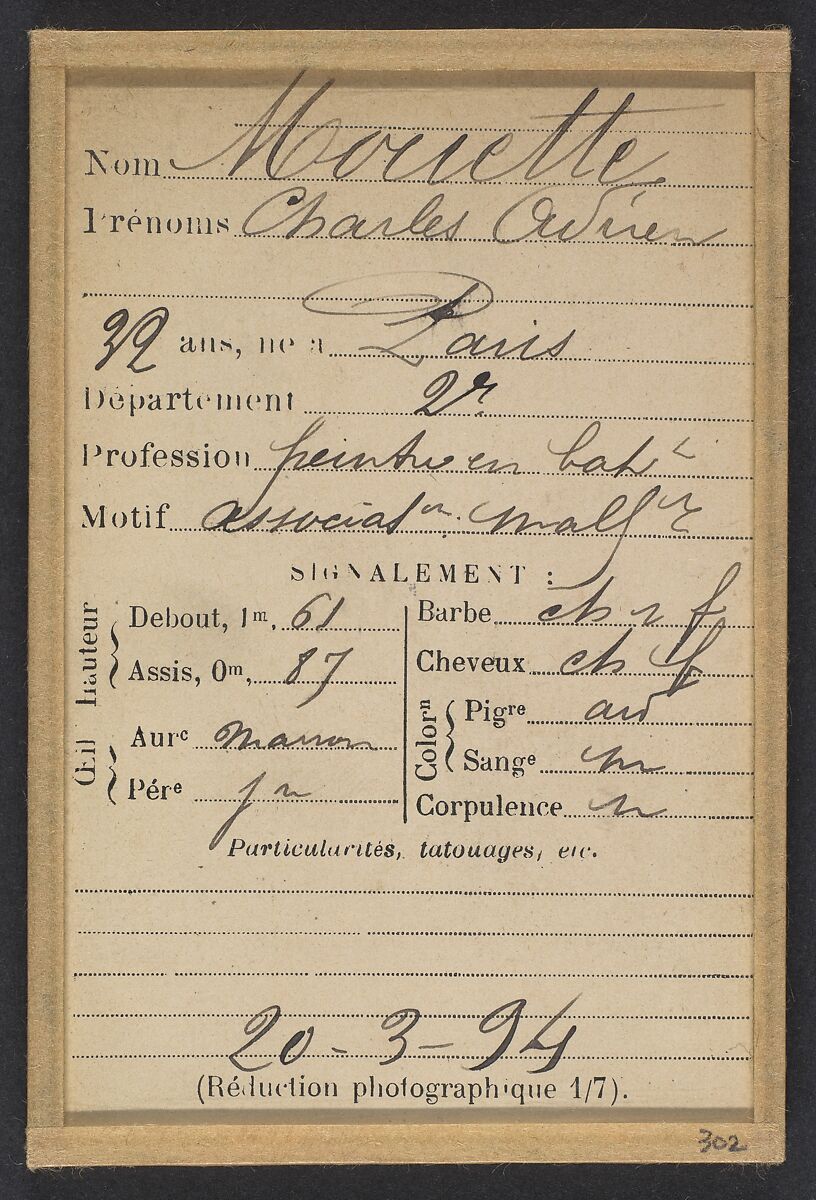 Nom Mouette
Prénoms Charles Adrien
32 ans, né à Paris
Département 2e
Profession peintre en bat t
Motif associat on. malf re
SIGNALEMENT :
hauteur
Debout, 1m, 61
Assis, 0m, 87
Œil
Aurc marron
Pére
Barbe ch r f
Cheveux ch f
Colorn
Pigre
Sange m
Corpulence m
Particularités, tatouages, etc.
20-3-94
(Réduction photographique 1/7).
302